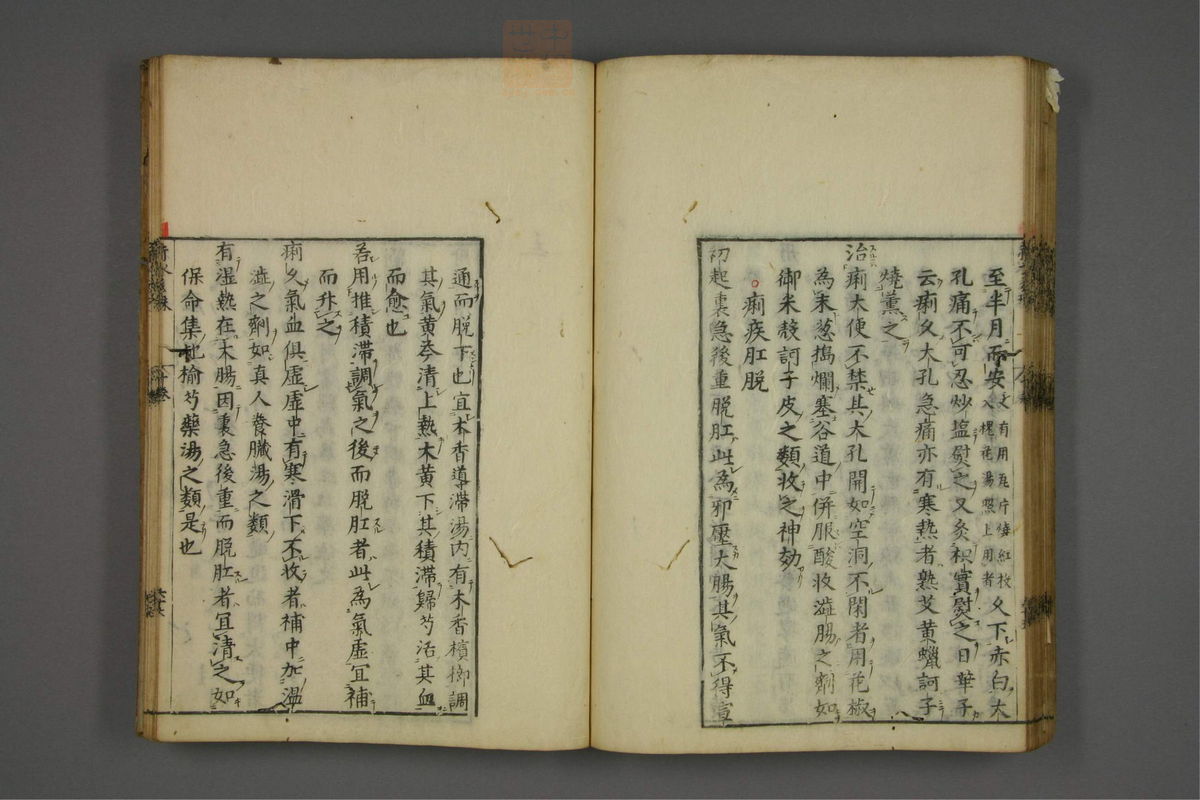 至半月而安又有用瓦片燒紅投人槐花湯熨上用者久下赤白大
孔痛不可忍炒塩熨之又灸枳實熨之日華子
云痢久大孔急痛亦有寒熱者熟艾黄蠟訶子
燒薫之
治痢大便不禁其大孔開如空洞不閉者用花椒
為末葱搗爛塞谷道中併服酸收澁腸之劑如
御米殼訶子皮之類收之神効
痢疾肛脱
初起裏急後重脱肛此為邪壓大腸其氣不得宣
通而脱下也宜木香導滯湯内有木香檳榔調
其氣黄芩清上熱大黄下其積滯歸芍活其血
而愈也
若用推積滯調氣之後而脱肛者此為氣虚宜補
而升之
痢久氣血俱虚虚中有寒滑下不收者補中加温
澁之劑如真人養臓湯之類
有湿熱在大腸因裏急後重而脱肛者宜清之如
保命集地榆芍藥湯之類是也